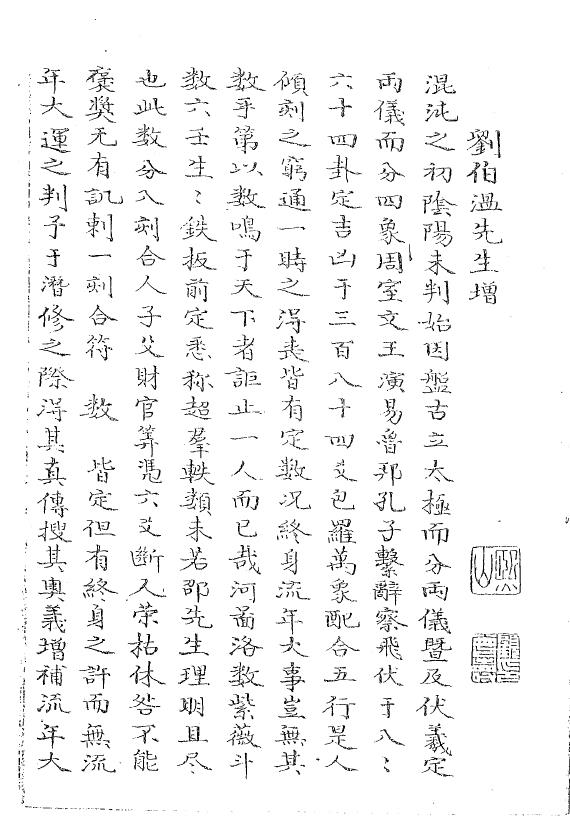 劉伯溫先生增
混沌之初陰陽未判始因盤古立太極而分両儀暨及伏羲定
両儀而分四象周室文王演易魯邦孔子繫辭察飛伏于八〻
六十四卦定吉凶于三百八十四爻包羅萬象配合五行是人
傾刻之窮通一時之淂丧皆有定数况終身流年大事豈無其
数乎第以数鳴于天下者詎止一人而已哉河啚洛数紫薇斗
数六壬生〻鉄扳前定悉称超羣軼類未若邵先生理明且尽
也此数分八刻合人子父財官筭憑六爻斷人荣枯休咎不能
褒奬无有訊刺一刻合符 数 皆定但有終身之許而無流
年大運之判予于潛修之際淂其真傳搜其奥義增補流年大